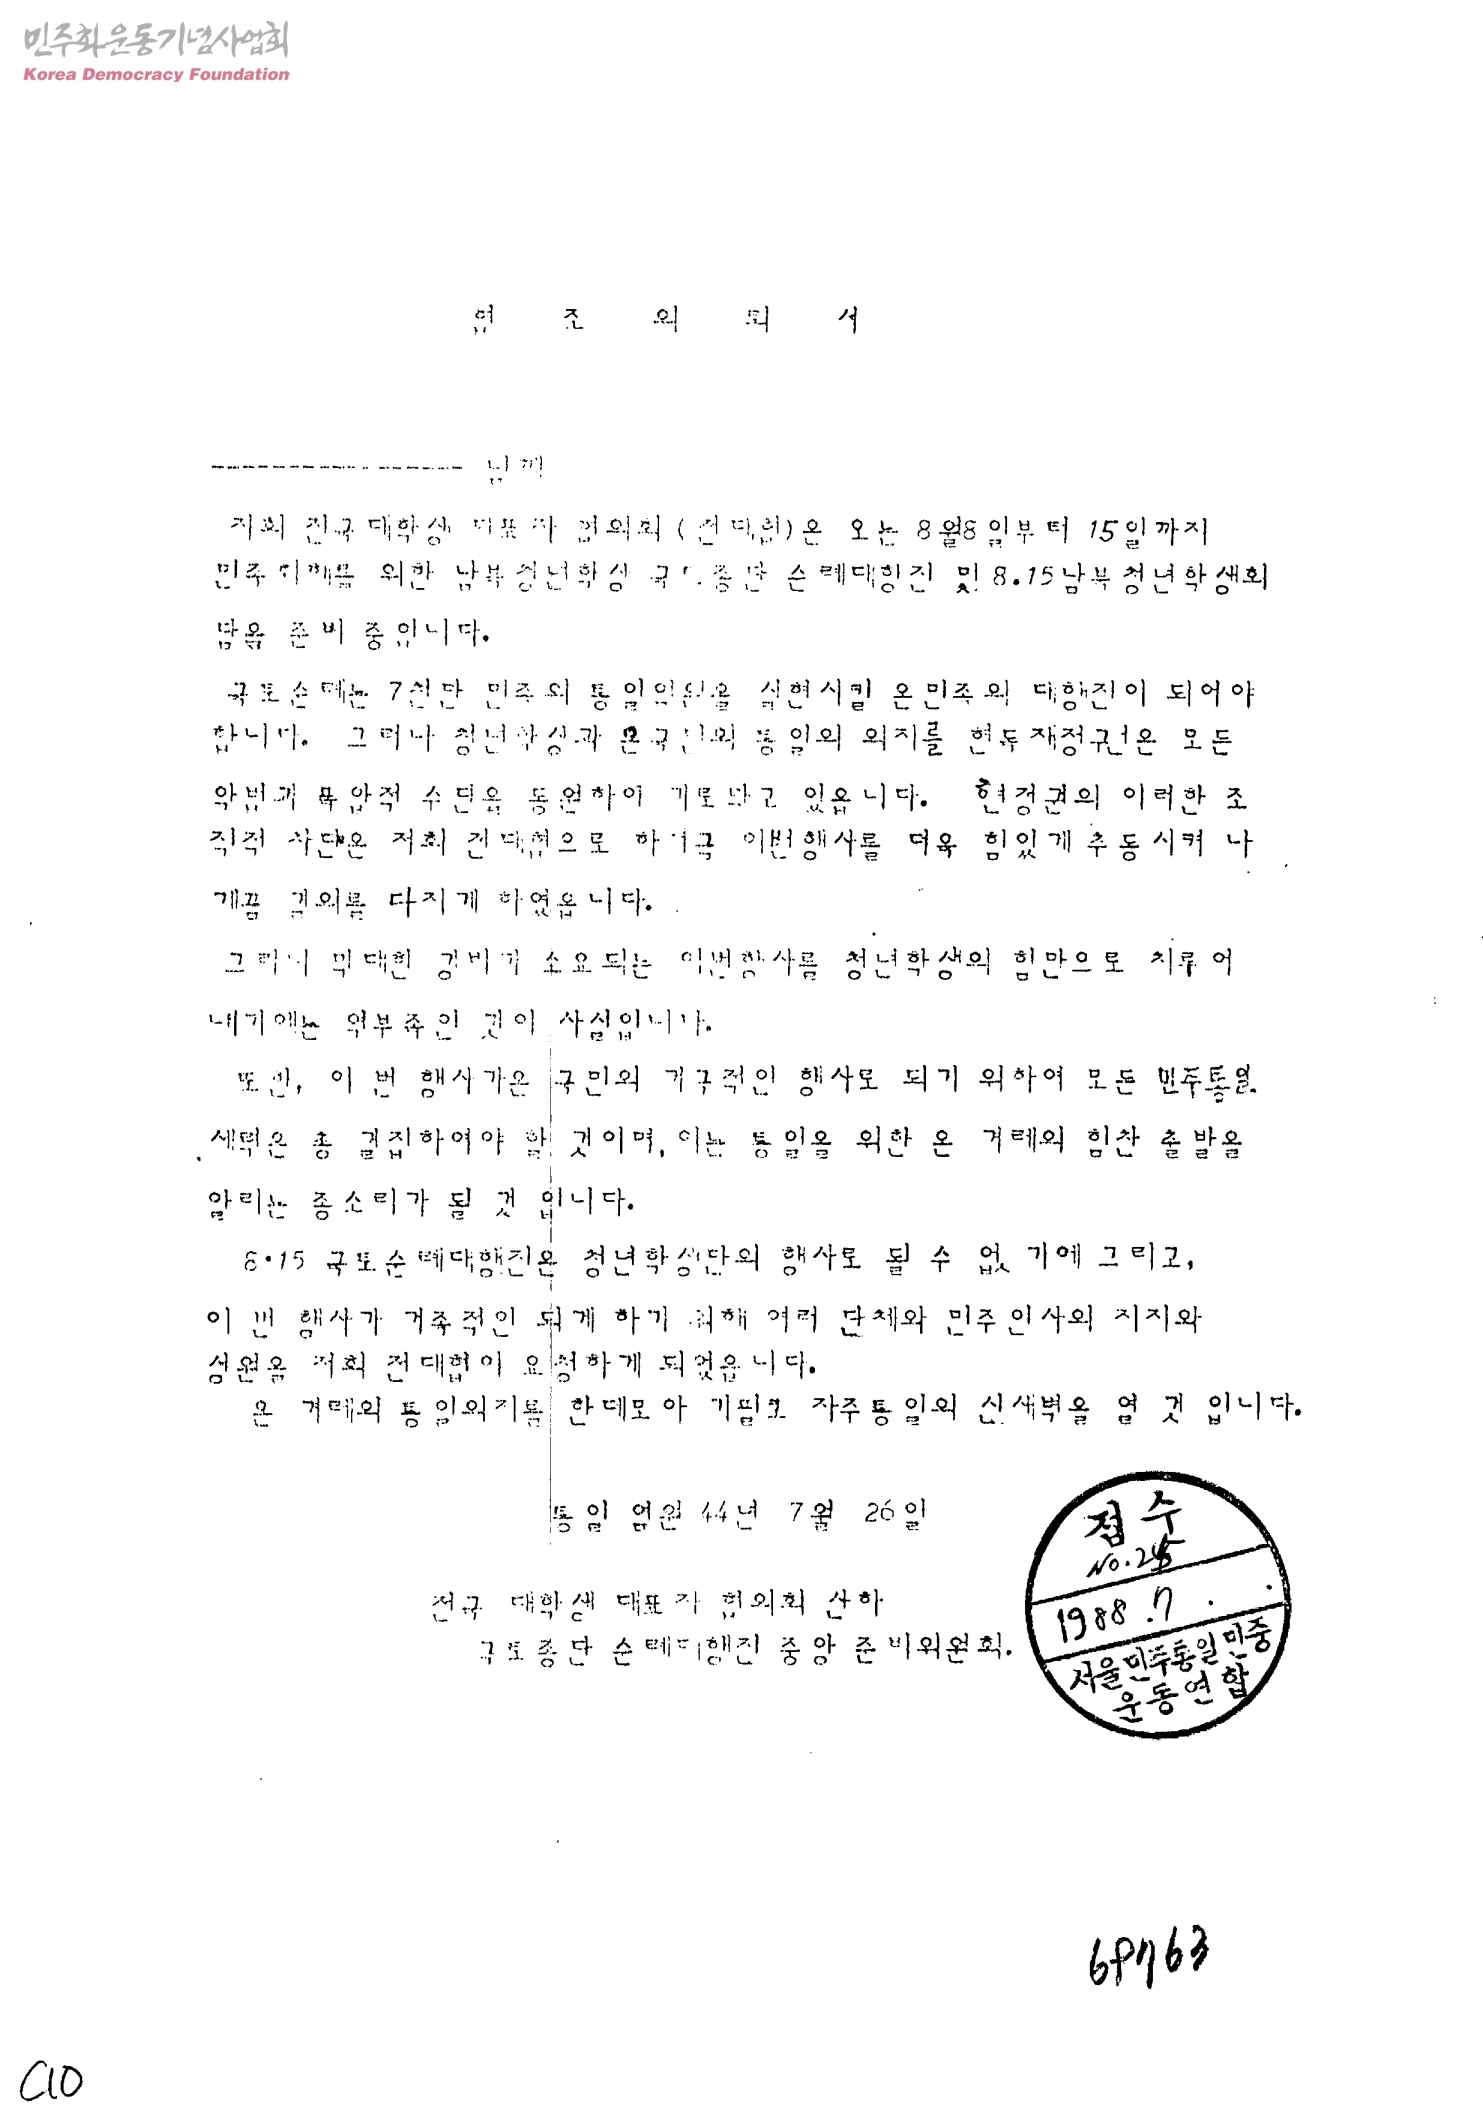 민주화운동기념사업회
Korea Democracy Foundation
협 조 의 뢰 서
님께
저희 전국 대학생 대표자 협의회(전대협)은 오는 8월8일부터 15일까지
민주 위한 남북청년학생 국토종단 순례대행진 및 8.15남북청년학생회
담을 준비 중입니다.
국토순례는 7천만 민족의 통일염원을 실현시킬 온민족의 대행진이 되어야
합니다. 그러나 청년학생과 온국민의 통일의 의지를 현독재정권은 모든
악법과 폭압적 수단을 동원하여 가로막고 있읍니다. 현정권의 이러한 조
직적 차단은 저희 전대협으로 하여금 이번행사를 더욱 힘있게 추동시켜 나
게끔 결의를 다지게 하였읍니다.
그러나 막대한 경비가 소요되는 이번행사를 청년학생의 힘만으로 치루어
내기에는 역부족인 것이 사실입니다.
또한, 이 번 행사가온 국민의 거국적인 행사로 되기 위하여 모든 민주통일
세력은 총 결집하여야 할 것이며, 이는 통일을 위한 온 겨레의 힘찬 출발을
알리는 종소리가 될 것 입니다.
8.15 국토순례대행진은 청년학생만의 행사로 될 수 없 기에 그리고,
이 번 행사가 거족적인 되게 하기 위해 여러 단체와 민주인사의 지지와
성원을 저희 전대협이 요청하게 되었읍니다.
온 겨레의 통일의지를 한데모아 기필코 자주통일의 신새벽을 열 것 입니다.
통일 염원 44년 7월 26일
전국 대학생 대표자 협의회 산하
국토종단 순례대행진 중앙 준비위원회.
접수
NO.245
1988.7 .
서울민주통일민중
운동연합
C10